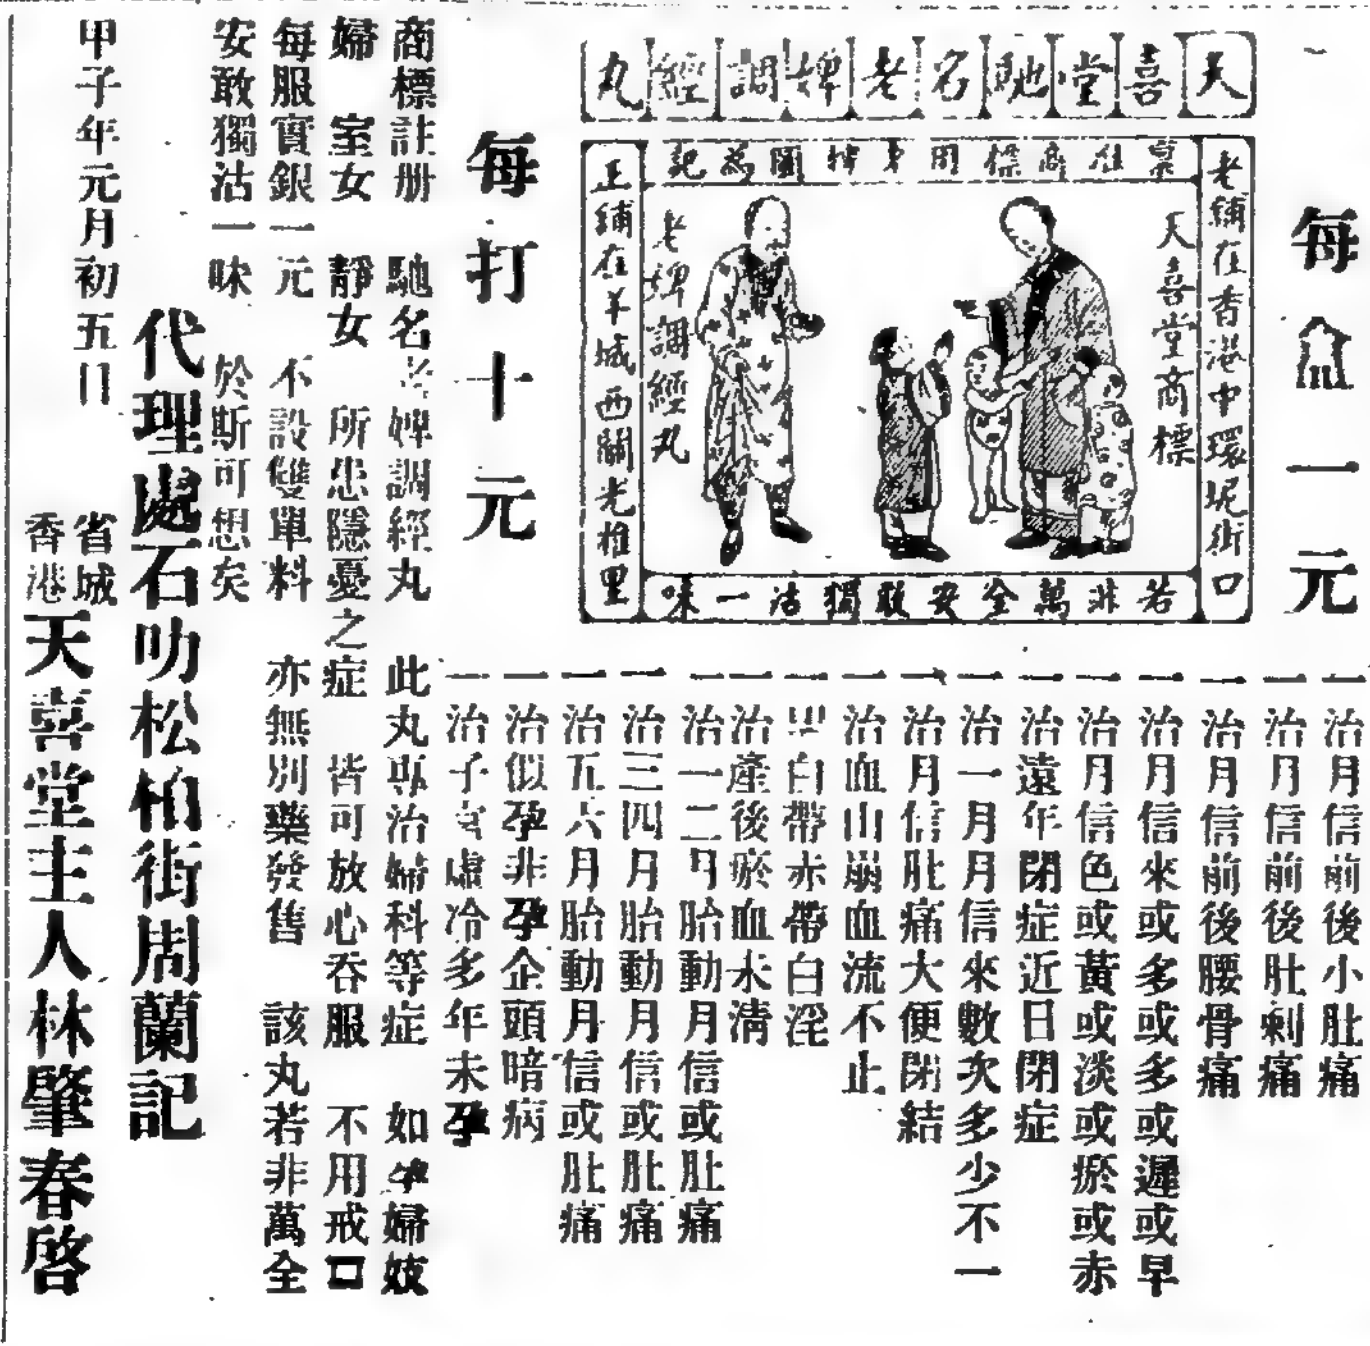 每盒一元
天喜堂馳名老婢調經丸
稟准商標用東婢圖為記
老鋪在香港中環坭街口
天喜堂商標
老婢調經丸
正鋪在羊城西關光雅里
若非萬全安敢獨沽一味
每打十元
一治月信前後小肚痛
一治月信前後肚刺痛
一治月信前後腰骨痛
一治月信來或多或多或遲或早
一治月信色或黃或淡或瘀或赤
一治遠年閉症近日閉症
一治一月月信來數次多少不一
一治月信肚痛大便閉結
一治血山崩血流不止
一 白帶赤帶白淫
一治產後瘀血未清
一治一二月胎動月信或肚痛
一治三四月胎動月信或肚痛
一治五六月胎動月信或肚痛
一治似孕非孕企頭暗病
一治子宮虛冷多年未孕
商標註册 馳名老婢調經丸 此丸專治婦科等症 如孕婦妓
婦 室女 靜女 所患隱憂之症 皆可放心吞服 不用戒口
每服實銀一元 不設雙單料 亦無別藥發售 該丸若非萬全
安敢獨沽一味 於斯可想矣
代理處石叻松柏街周蘭記
甲子年元月初五日
省城
香港
天喜堂主人林肇春啓